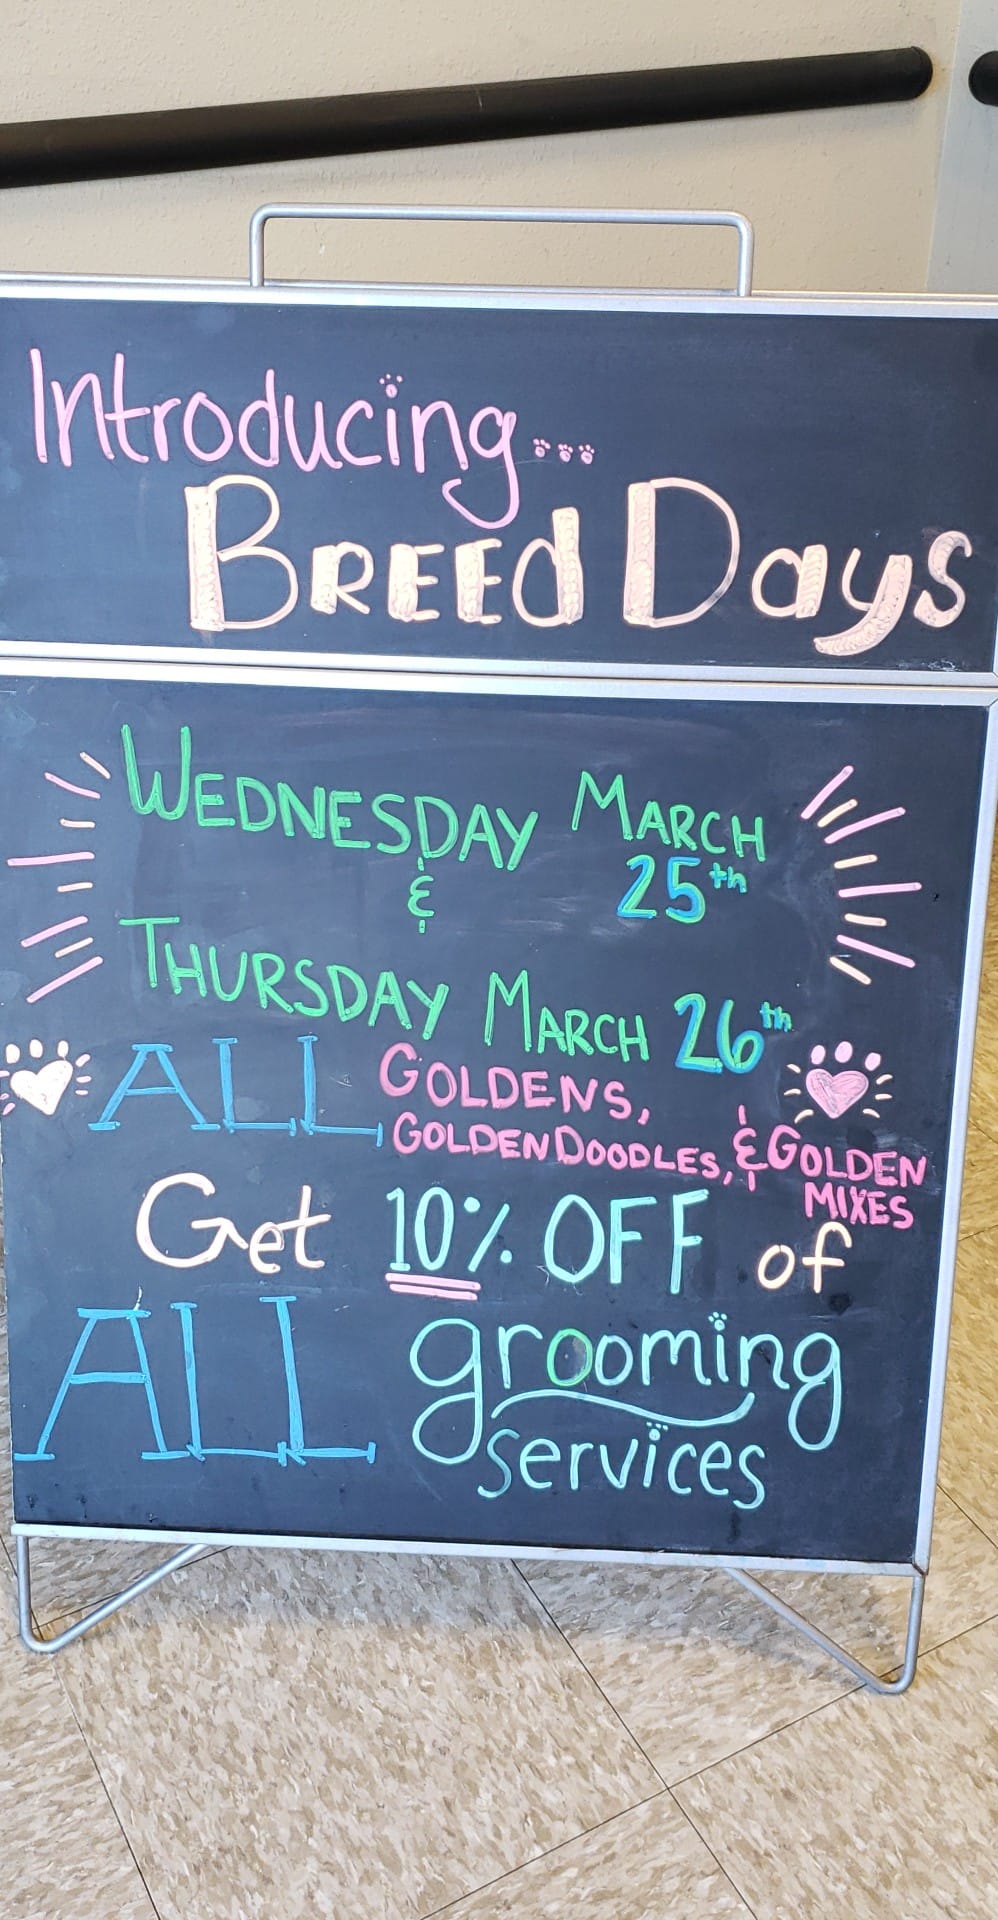 Introducing...
BREEd Days
WEDNESDAY MARCH 25th
&
THURSDAY MARCH 26th
ALL GOLDENS,
GOLDENDOODLES, & GOLDEN MIXES
Get 10% OFF of
ALL grooming
services